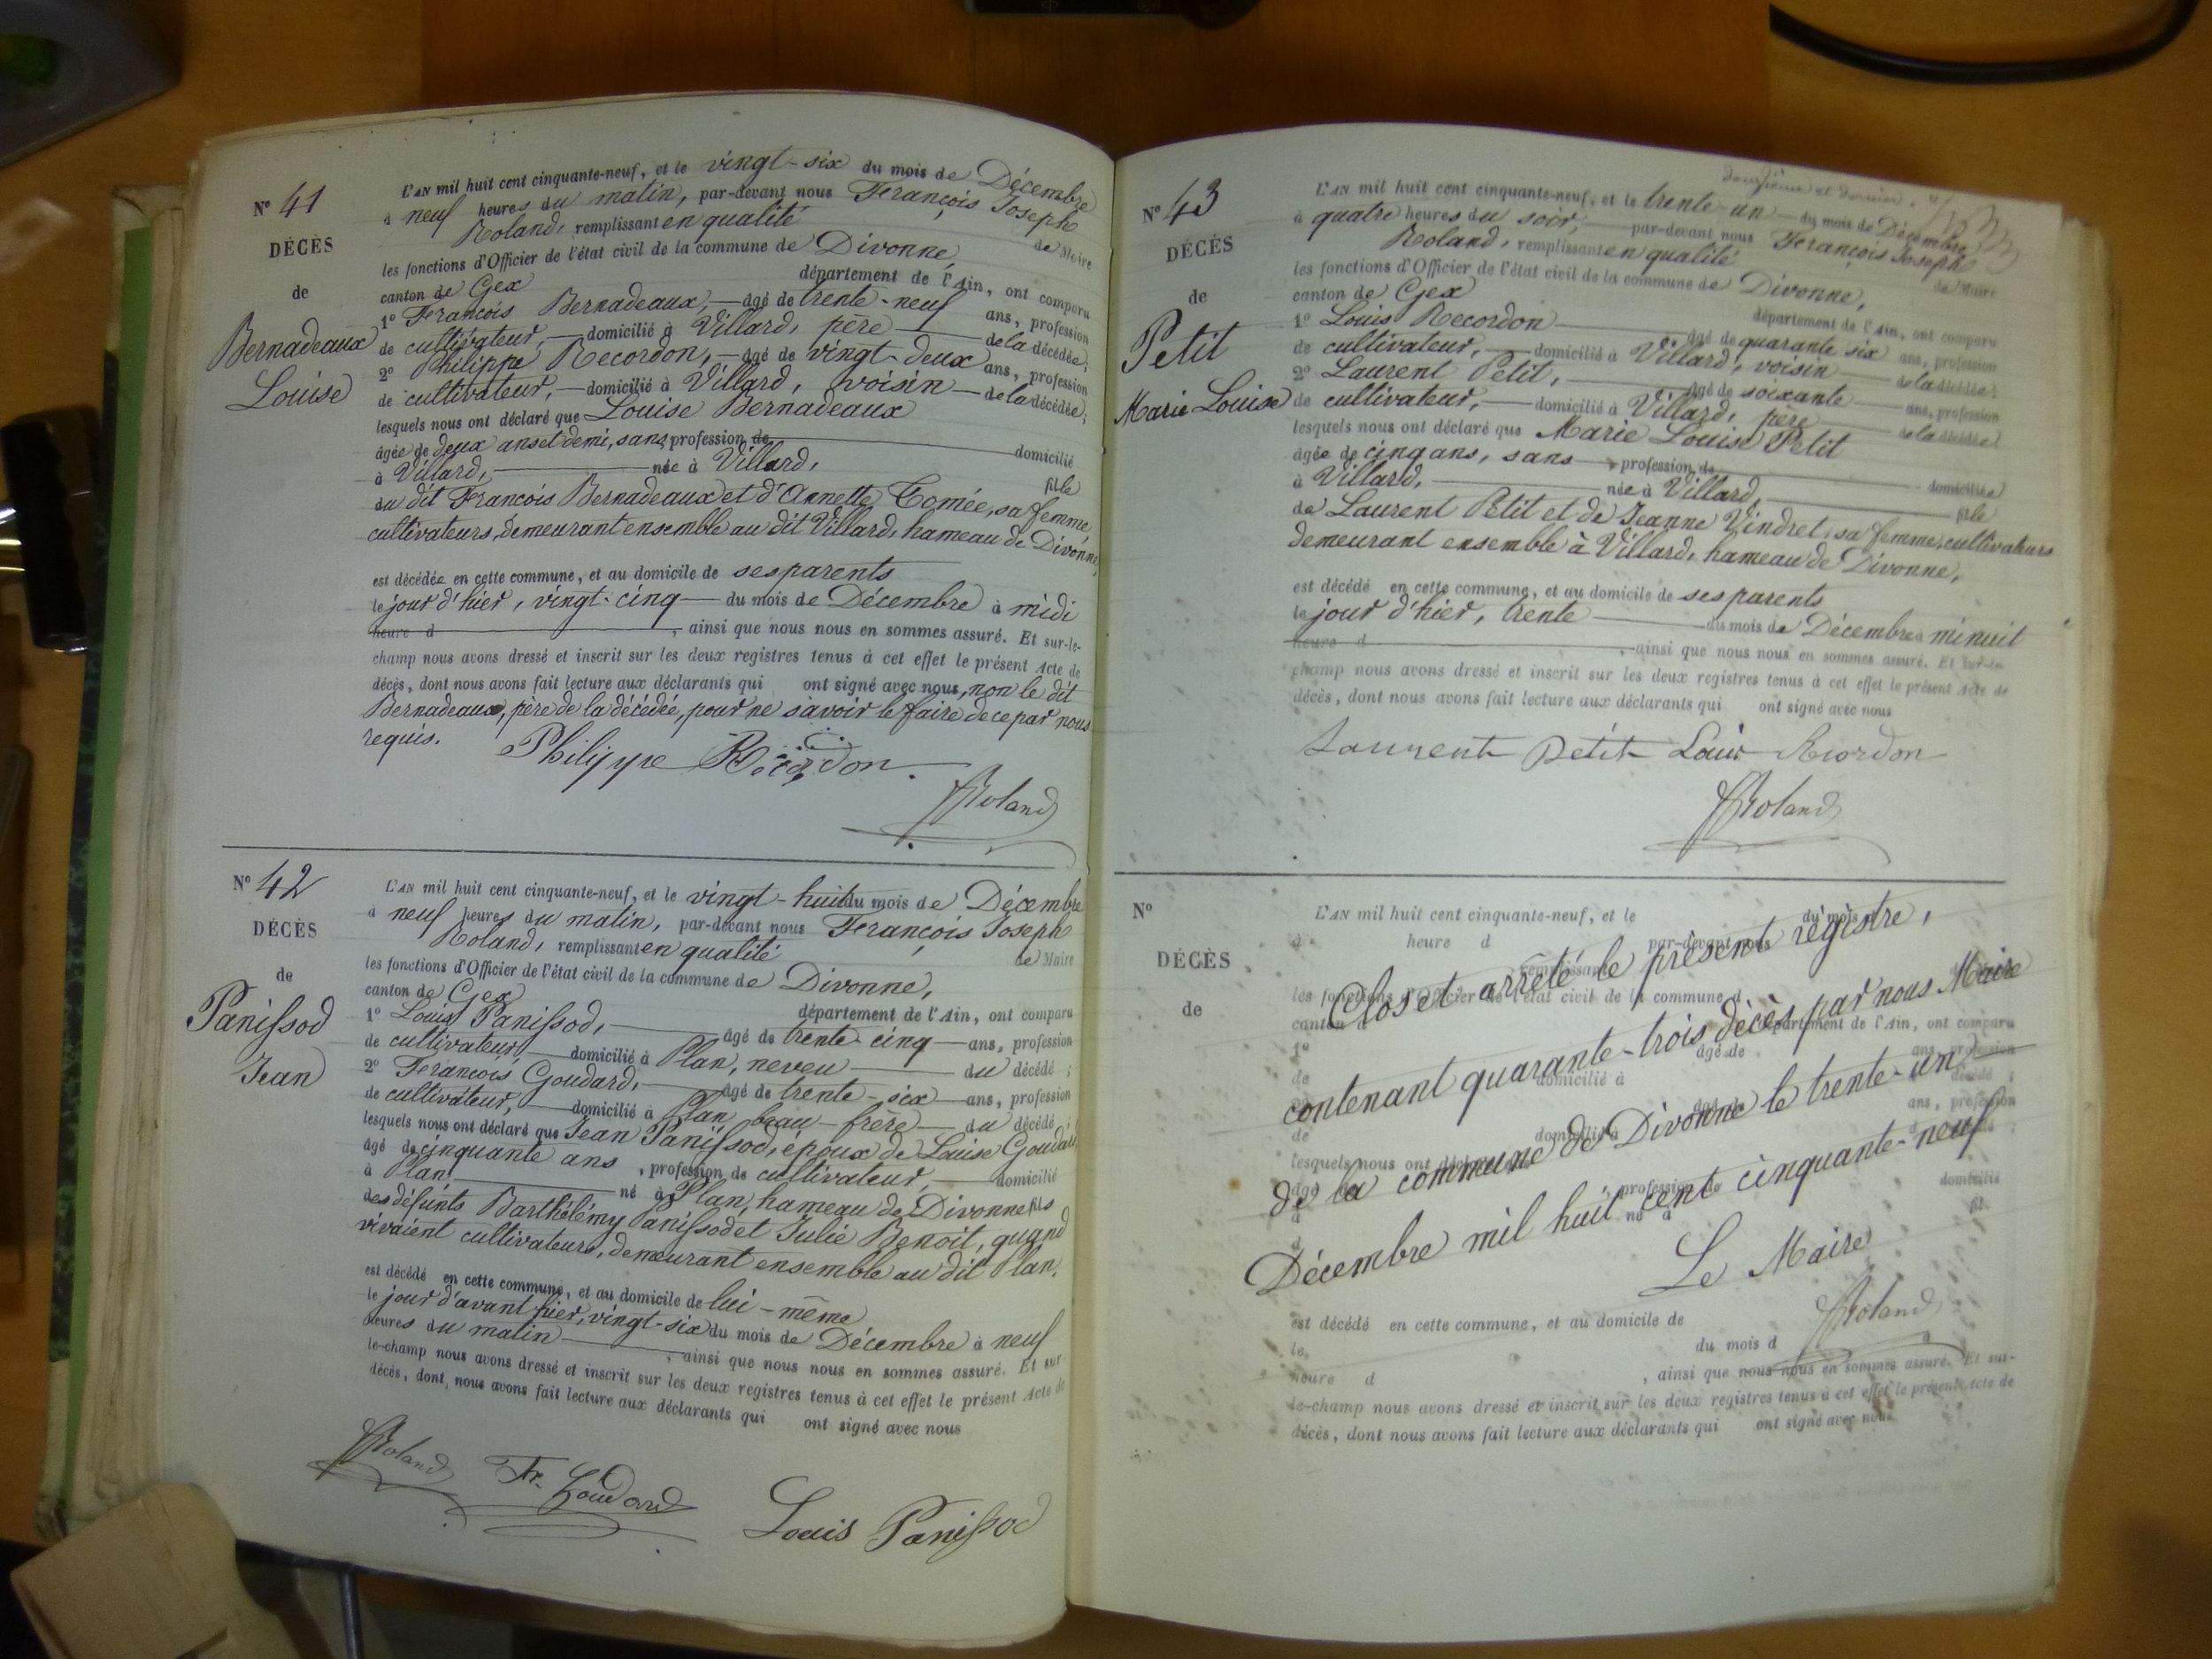 N° 41
DÉCÈS
de
Bernadeaux
Louise
L'AN mil huit cent cinquante-neuf, et le vingt-six du mois de Décembre
à neuf heures du matin, par-devant nous François Joseph
Roland, remplissant en qualité de Maire
les fonctions d'Officier de l'état civil de la commune de Divonne,
canton de Gex département de l'Ain, ont comparu
1° François Bernadeaux, âgé de trente-neuf ans, profession
de cultivateur, domicilié à Villard, père de la décédée;
2° Philippe Recordon, âgé de vingt-deux ans, profession
de cultivateur, domicilié à Villard, voisin de la décédée;
lesquels nous ont déclaré que Louise Bernadeaux
âgée de deux ans et demi, sans profession de domicilié
à Villard, née à Villard, fille
du dit François Bernadeaux et d'Annette Comée, sa femme
cultivateurs, demeurant ensemble au dit Villard, hameau de Divonne,
est décédée en cette commune, et au domicile de ses parents
le jour d'hier, vingt-cinq du mois de Décembre à midi
heure d , ainsi que nous nous en sommes assuré. Et sur-le-
champ nous avons dressé et inscrit sur les deux registres tenus à cet effet le présent Acte de
décès, dont nous avons fait lecture aux déclarants qui ont signé avec nous, non le dit
Bernadeaux, père de la décédée, pour ne savoir le faire de ce par nous
requis.
Philippe Recordon
Roland
N° 42
DÉCÈS
de
Panissod
Jean
L'AN mil huit cent cinquante-neuf, et le vingt-huit du mois de Décembre
à neuf heures du matin, par-devant nous François Joseph
Roland, remplissant en qualité de Maire
les fonctions d'Officier de l'état civil de la commune de Divonne,
canton de Gex département de l'Ain, ont comparu
1° Louis Panissod, âgé de trente cinq ans, profession
de cultivateur, domicilié à Plan, neveu du décédé;
2° François Goudard, âgé de trente-six ans, profession
de cultivateur, domicilié à Plan, beau-frère du décédé;
lesquels nous ont déclaré que Jean Panissod, époux de Louise Goudard
âgé de cinquante ans, profession de cultivateur, domicilié
à Plan, né à Plan, hameau de Divonne fils
des défunts Barthélémy Panissod et Julie Benoit, quand
vivaient cultivateurs, demeurant ensemble au dit Plan,
est décédé en cette commune, et au domicile de lui-même
le jour d'avant hier, vingt-six du mois de Décembre à neuf
heures du matin , ainsi que nous nous en sommes assuré. Et sur
le-champ nous avons dressé et inscrit sur les deux registres tenus à cet effet le présent Acte de
décès, dont nous avons fait lecture aux déclarants qui ont signé avec nous
Roland Fr. Goudard
Louis Panissod
deuxième et dernier
N° 43
DÉCÈS
de
Petit
Marie Louise
L'AN mil huit cent cinquante-neuf, et le trente-un du mois de Décembre
à quatre heures du soir, par-devant nous François Joseph
Roland, remplissant en qualité de Maire
les fonctions d'Officier de l'état civil de la commune de Divonne,
canton de Gex département de l'Ain, ont comparu
1° Louis Recordon âgé de quarante six ans, profession
de cultivateur, domicilié à Villard, voisin de la décédée;
2° Laurent Petit, âgé de soixante ans, profession
de cultivateur, domicilié à Villard, père de la décédée;
lesquels nous ont déclaré que Marie Louise Petit
âgée de cinq ans, sans profession de domiciliée
à Villard, née à Villard, fille
de Laurent Petit et de Jeanne Vindret, sa femme, cultivateurs
demeurant ensemble à Villard, hameau de Divonne,
est décédé en cette commune, et au domicile de ses parents
le jour d'hier, trente du mois de Décembre à minuit
heure d , ainsi que nous nous en sommes assuré. Et sur-le-
champ nous avons dressé et inscrit sur les deux registres tenus à cet effet le présent Acte de
décès, dont nous avons fait lecture aux déclarants qui ont signé avec nous
Laurent Petit Louis Recordon
Roland
N°
DÉCÈS
de
L'AN mil huit cent cinquante-neuf, et le du mois d
à heure d par-devant nous
remplissant
les fonctions d'Officier de l'état civil de la commune d
canton d département de l'Ain, ont comparu
1° âgé de ans, profession
de domicilié à d décédé;
âgé de ans, profession
de domicilié à d décédé;
lesquels nous ont déclaré
âgé de , profession de domicilié
à né à fil
d
Clos et arrêté le présent registre,
contenant quarante-trois décès par nous Maire
de la commune de Divonne le trente-un
Décembre mil huit cent cinquante-neuf
Le Maire
Roland
est décédé en cette commune, et au domicile de
le du mois d
heure d , ainsi que nous nous en sommes assuré. Et sur-
le-champ nous avons dressé et inscrit sur les deux registres tenus à cet effet le présent Acte de
décès, dont nous avons fait lecture aux déclarants qui ont signé avec nous